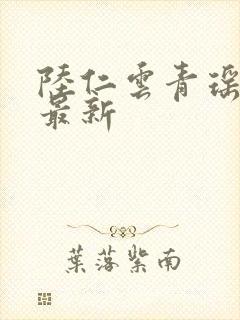 陸仁雲青瑶
最新
葉落紫南